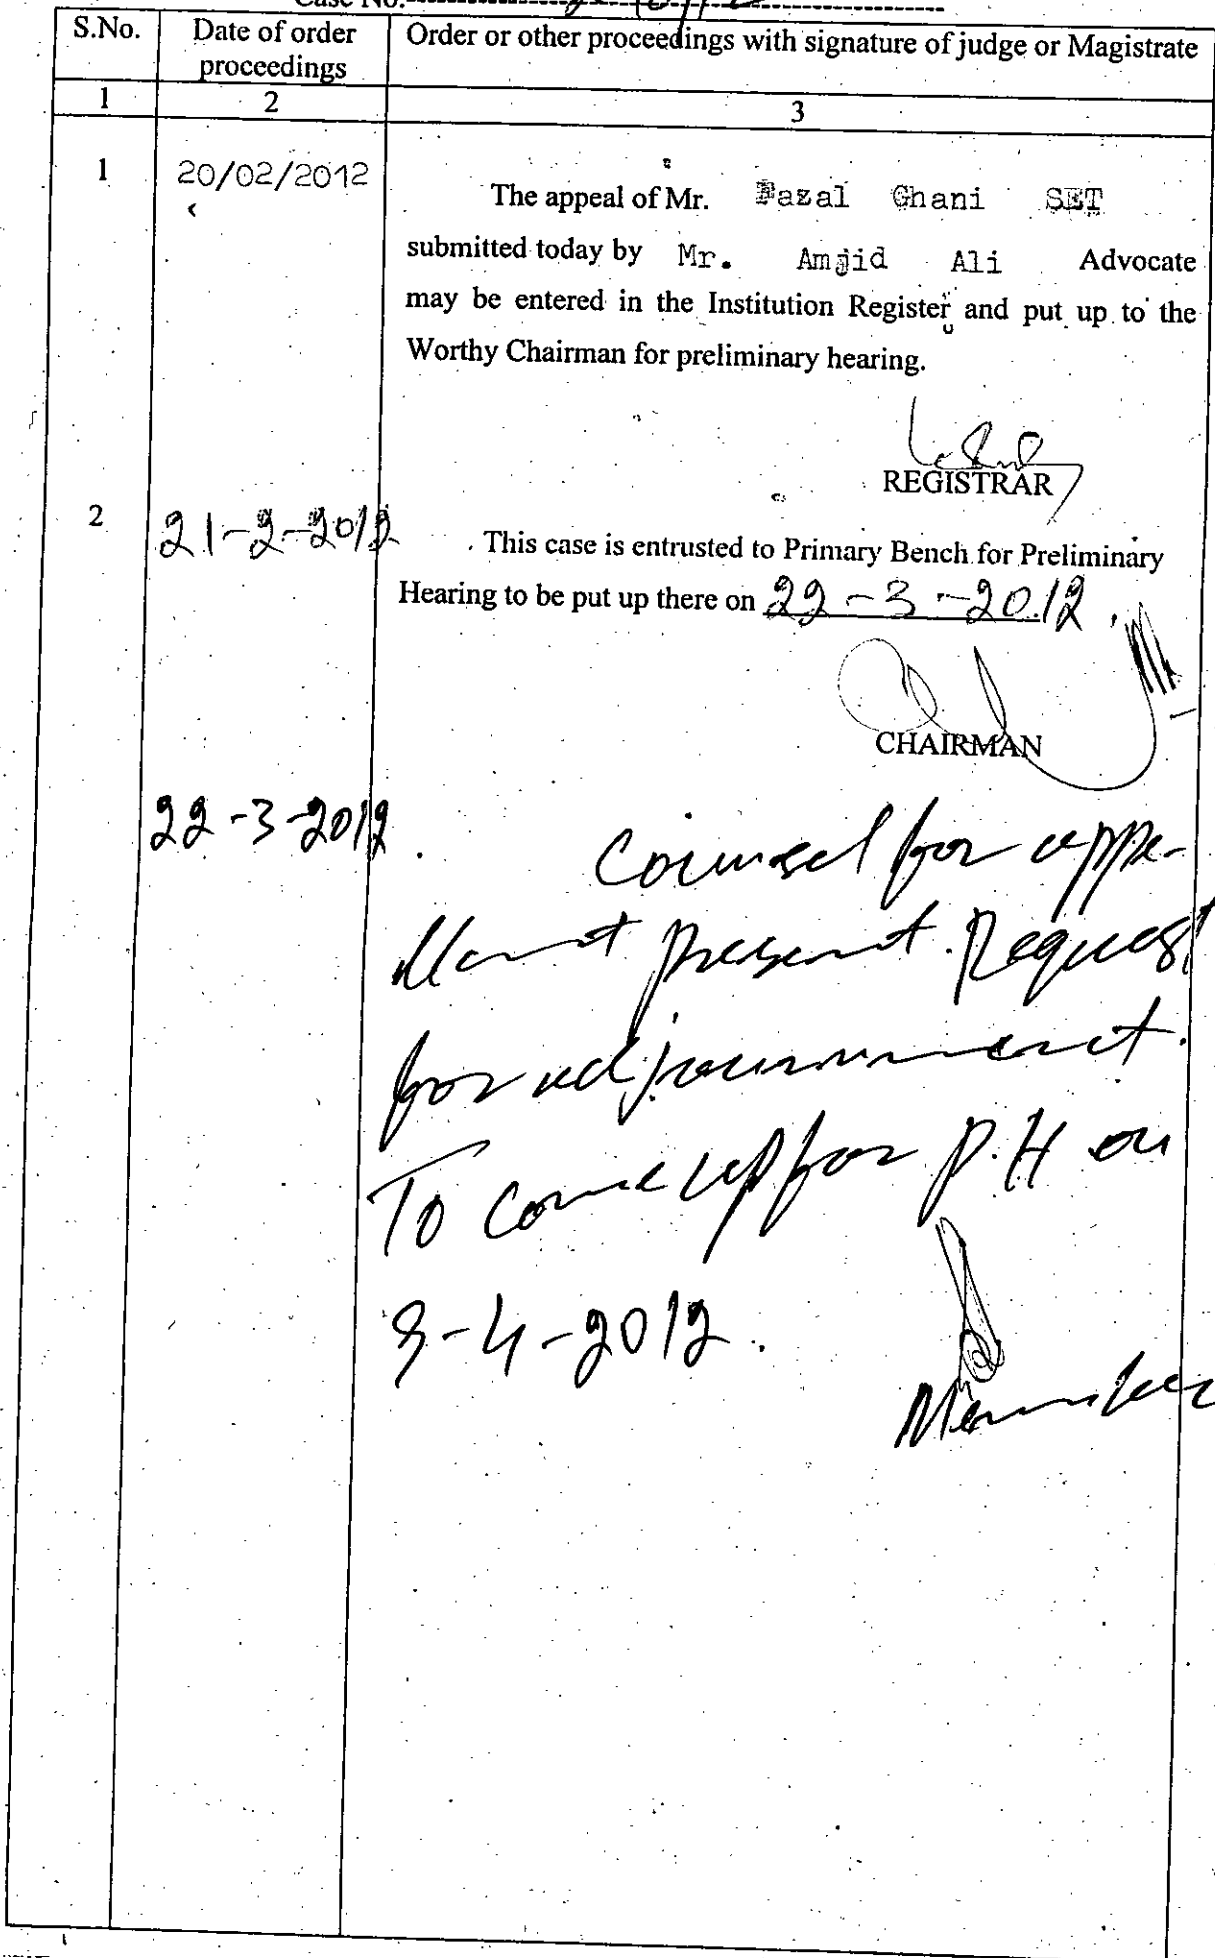 Case No.
S.No. Date of order proceedings Order or other proceedings with signature of judge or Magistrate
1 2 3
1 20/02/2012
The appeal of Mr. Fazal Ghani SET
submitted today by Mr. Amjid Ali Advocate
may be entered in the Institution Register and put up to the
Worthy Chairman for preliminary hearing.
REGISTRAR
2 21-2-2012 This case is entrusted to Primary Bench for Preliminary
Hearing to be put up there on 22-3-2012.
CHAIRMAN
22-3-2012. Counsel for appe-
llant present. Request
for adjournment.
To come up for P.H on
3-4-2012.
Member